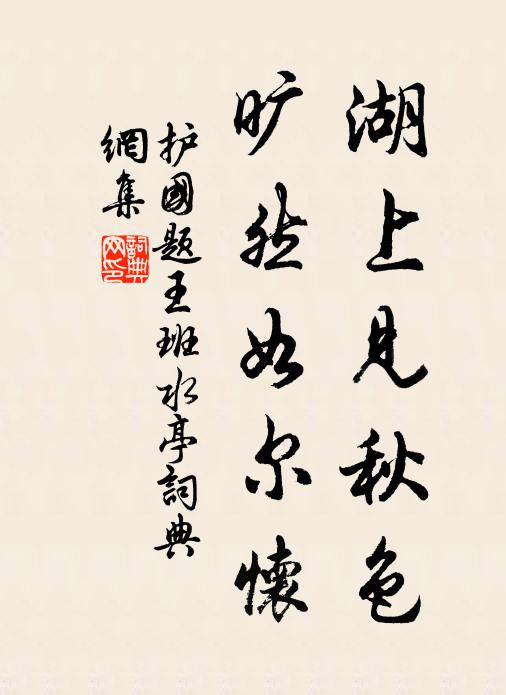 湖上见秋色
旷然如尔怀
护國题王班水亭詞典
網集
詞典
网印